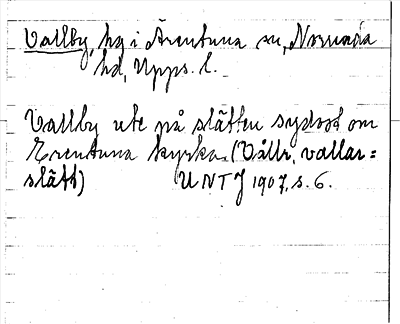 Vallby, hg i Ärentuna sn, Norunda
hd, Upps. l.
Vallby ute på slätten sydost om
Erentuna kyrka. (Vållr, vallar=
slätt) UNTJ 1907, s. 6.